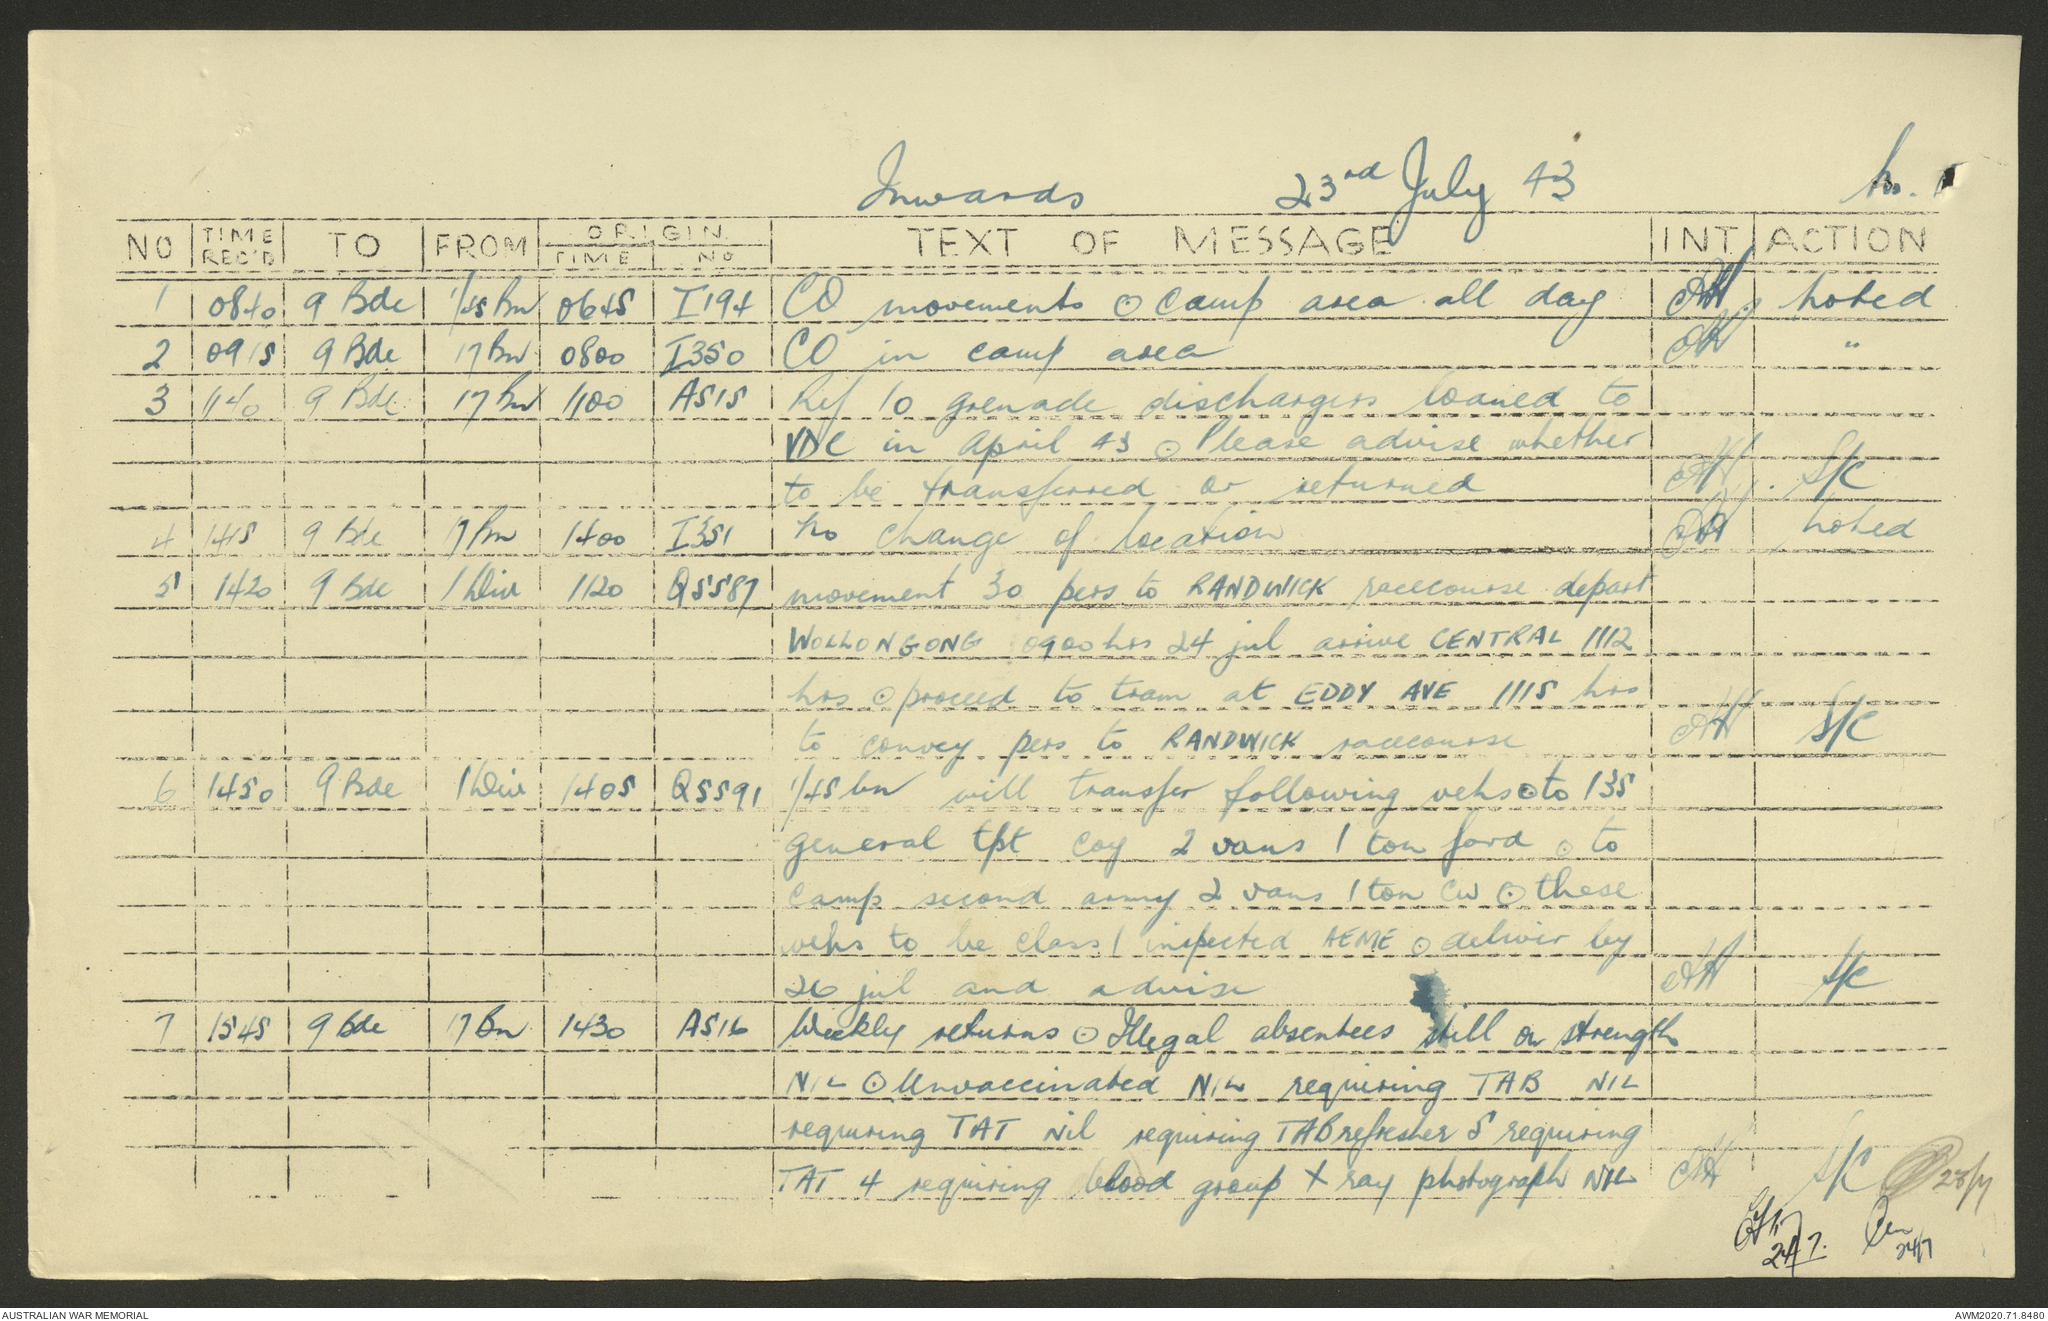 Inwards 23rd July 43 No. 1
NO TIME REC'D TO FROM ORIGIN TIME NO TEXT OF MESSAGE INT ACTION
1 0840 9 Bde 1/45 Bn 0645 I194 CO movements ⊙ Camp area all day noted
2 0915 9 Bde 17 Bn 0800 I350 CO in camp area "
3 1140 9 Bde 17 Bn 1100 A515 Ref 10 grenade dischargers loaned to
VDC in April 43 ⊙ Please advise whether
to be transferred or returned S/C
4 1415 9 Bde 17 Bn 1400 I351 No change of location noted
5 1420 9 Bde 1 Div 1120 Q5587 movement 30 pers to RANDWICK racecourse depart
WOLLONGONG 0900 hrs 24 jul arrive CENTRAL 1112
hrs ⊙ proceed to tram at EDDY AVE 1115 hrs
to convey pers to RANDWICK racecourse S/C
6 1450 9 Bde 1 Div 1405 Q5591 1/45 bn will transfer following vehs ⊙ to 135
general tpt coy 2 vans 1 ton ford ⊙ to
camp second army 2 vans 1 ton CW ⊙ these
vehs to be class 1 inspected AEME ⊙ deliver by
26 jul and advise S/C
7 1545 9 Bde 17 Bn 1430 A516 Weekly returns ⊙ Illegal absentees still on strength
NIL ⊙ Unvaccinated NIL requiring TAB NIL
requiring TAT Nil requiring TAB refresher 5 requiring
TAT 4 requiring blood group X ray photograph NIL S/C
24/7. 24/7
AUSTRALIAN WAR MEMORIAL AWM2020.71.8480